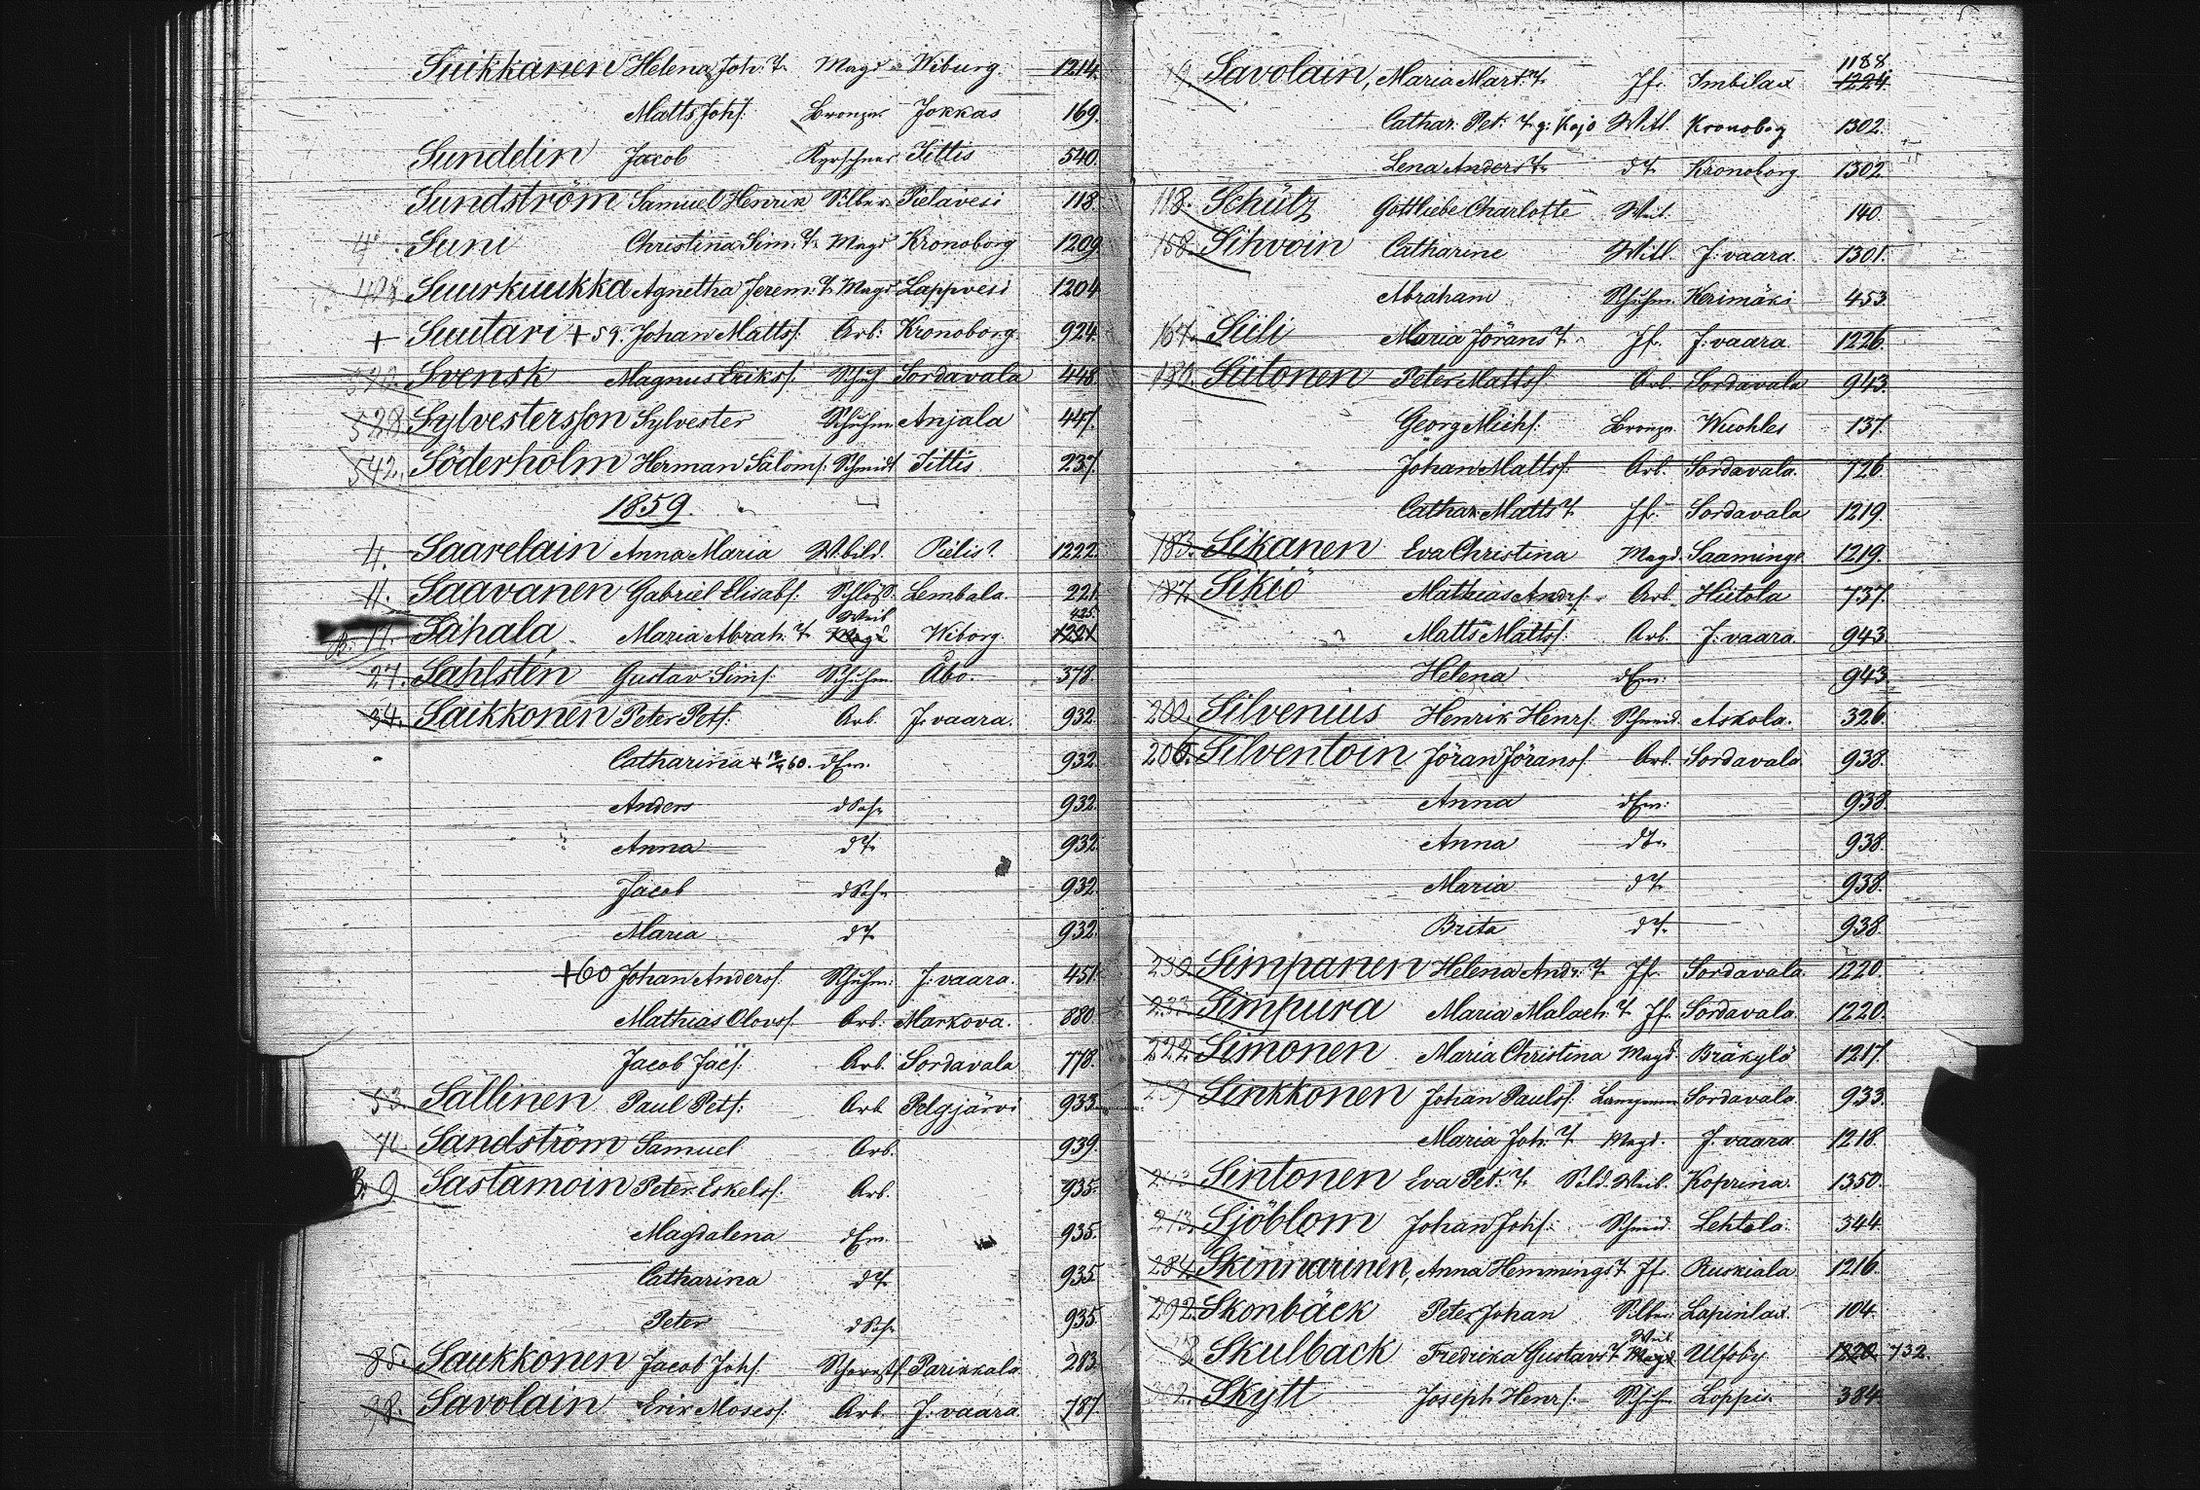 Suikkanen Helena Joh: T. Magd Wiburg. 1214.
Matts Johs. Bronzer Jokkas 169.
Sundelin Jacob Kyrschner Sittis 540.
Sundström Samuel Henrik Silber Pielavesi 118.
4 Suni Christina Sim: T. Magd Kronoborg 1209.
Suurkuukka Agnetha Jerem: T. Magd Lappvesi 1204
+ Suutari +59. Johan Matts. Arb: Kronoborg 924.
Svensk Magnus Eriks. Schuh Sordavala 448.
528 Sylvestersson Sylvester Schuhm Anjala 447.
542. Söderholm Herman Saloms: Schmidt Sittis. 237.
1859.
4. Saarelain Anna Maria W.bild. Pielis? 1222.
11. Saavanen Gabriel Elisabs. Schloss. Lembala. 221.
Weib 425.
B. 17. Sahala Maria Abrah: T. Magd Wiborg. 1221
27. Sahlstén Gustav Sims: Schuhm Åbo. 378.
34. Saikkonen Peter Pets. Arb. J: vaara. 932.
Catharina + 12/4 60. d Em. 932.
Anders d Sohn 932.
Anna d T. 932.
Jacob d Sohn 932.
Maria d T. 932.
+60 Johan Anders. Schuhm: J: vaara. 451.
Mathias Olovs. Arb: Markova. 880.
Jacob Jacs. Arb. Sordavala 778.
53. Sallinen Paul Pets: Arb Pelgjärvi 933.
71. Sandström Samuel Arb. 939.
B. 9 Sastamoin Peter Eskels. Arb. 935.
Magdalena d Em. 935.
Catharina d T. 935.
Peter d Sohn 935.
85. Saukkonen Jacob Johs. Schornstf. Parikkala 283.
98. Savolain Erik Moses. Arb. J: vaara 787.
1188
Savolain, Maria Mart: T. Jfr. Imbilax 1224.
Cathar: Pet: T. g: Kojo Witt. Kronobog 1302.
Lena Anders T. d T. Kronoborg. 1302.
118. Schütz Gottliebe Charlotte Weib. 140.
158. Sihvoin Catharine Witt. J: vaara. 1301.
Abraham Schuhm. Kerimäki 453.
167. Siili Maria Jörans T. Jfr. J: vaara. 1226.
180. Siitonen Peter Matts. Arb. Sordavala 943.
Georg Michs. Bronzr. Wuohles 137.
Johan Matts. Arb. Sordavala. 726.
Cathar. Matts T. Jfr. Sordavala 1219.
183. Sikanen Eva Christina Magd. Saaminge 1219.
187. Sikiö Mathias Andrs. Arb. Hiitola 737.
Matts Matts. Arb. J: vaara. 943.
Helena d Em: 943.
200. Silvenius Henrik Henrs. Schmid. Askola. 326.
206. Silventoin Jöran Jörans. Arb. Sordavala 938.
Anna d Em: 938.
Anna d T. 938.
Maria d T. 938.
Brita d T. 938.
230. Simpanen Helena Andr: T. Jfr. Sordavala 1220.
233. Simpura Maria Malach: T. Jfr. Sordavala. 1220.
222 Simonen Maria Christina Magd. Bräkylä 1217.
239 Sinkkonen Johan Pauls. Sordavala 933.
Maria Joh: T. Magd. J: vaara. 1218.
Sintonen Eva Pet: T. Sold. Weib. Koprina. 1350.
273. Sjöblom Johan Johs: Schmid Lehtola. 344.
284. Skinnarinen, Anna Hemmings T. Jfr. Ruskiala. 1216.
292. Skonbäck Peter Johan Silber. Lapinlax. 104.
Weib.
8. Skulback Fredrika Gustavs T. Magd Ulfsby. 1220. 732.
302. Skytt Joseph Henrs. Schuhm Loppis. 384.